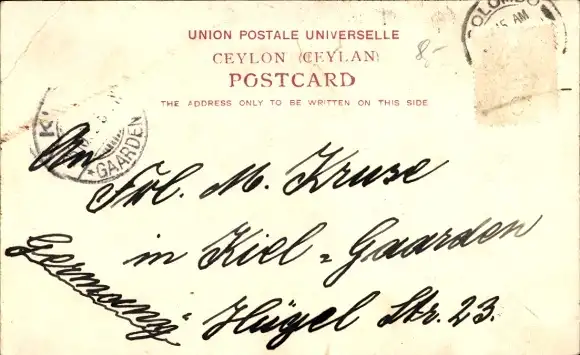 UNION POSTALE UNIVERSELLE
CEYLON (CEYLAN)
POSTCARD
THE ADDRESS ONLY TO BE WRITTEN ON THIS SIDE
8,-
COLOMBO
AM
GAARDEN
An
Frl. M. Kruse
in Kiel = Gaarden
Germany
Hügel Str. 23.